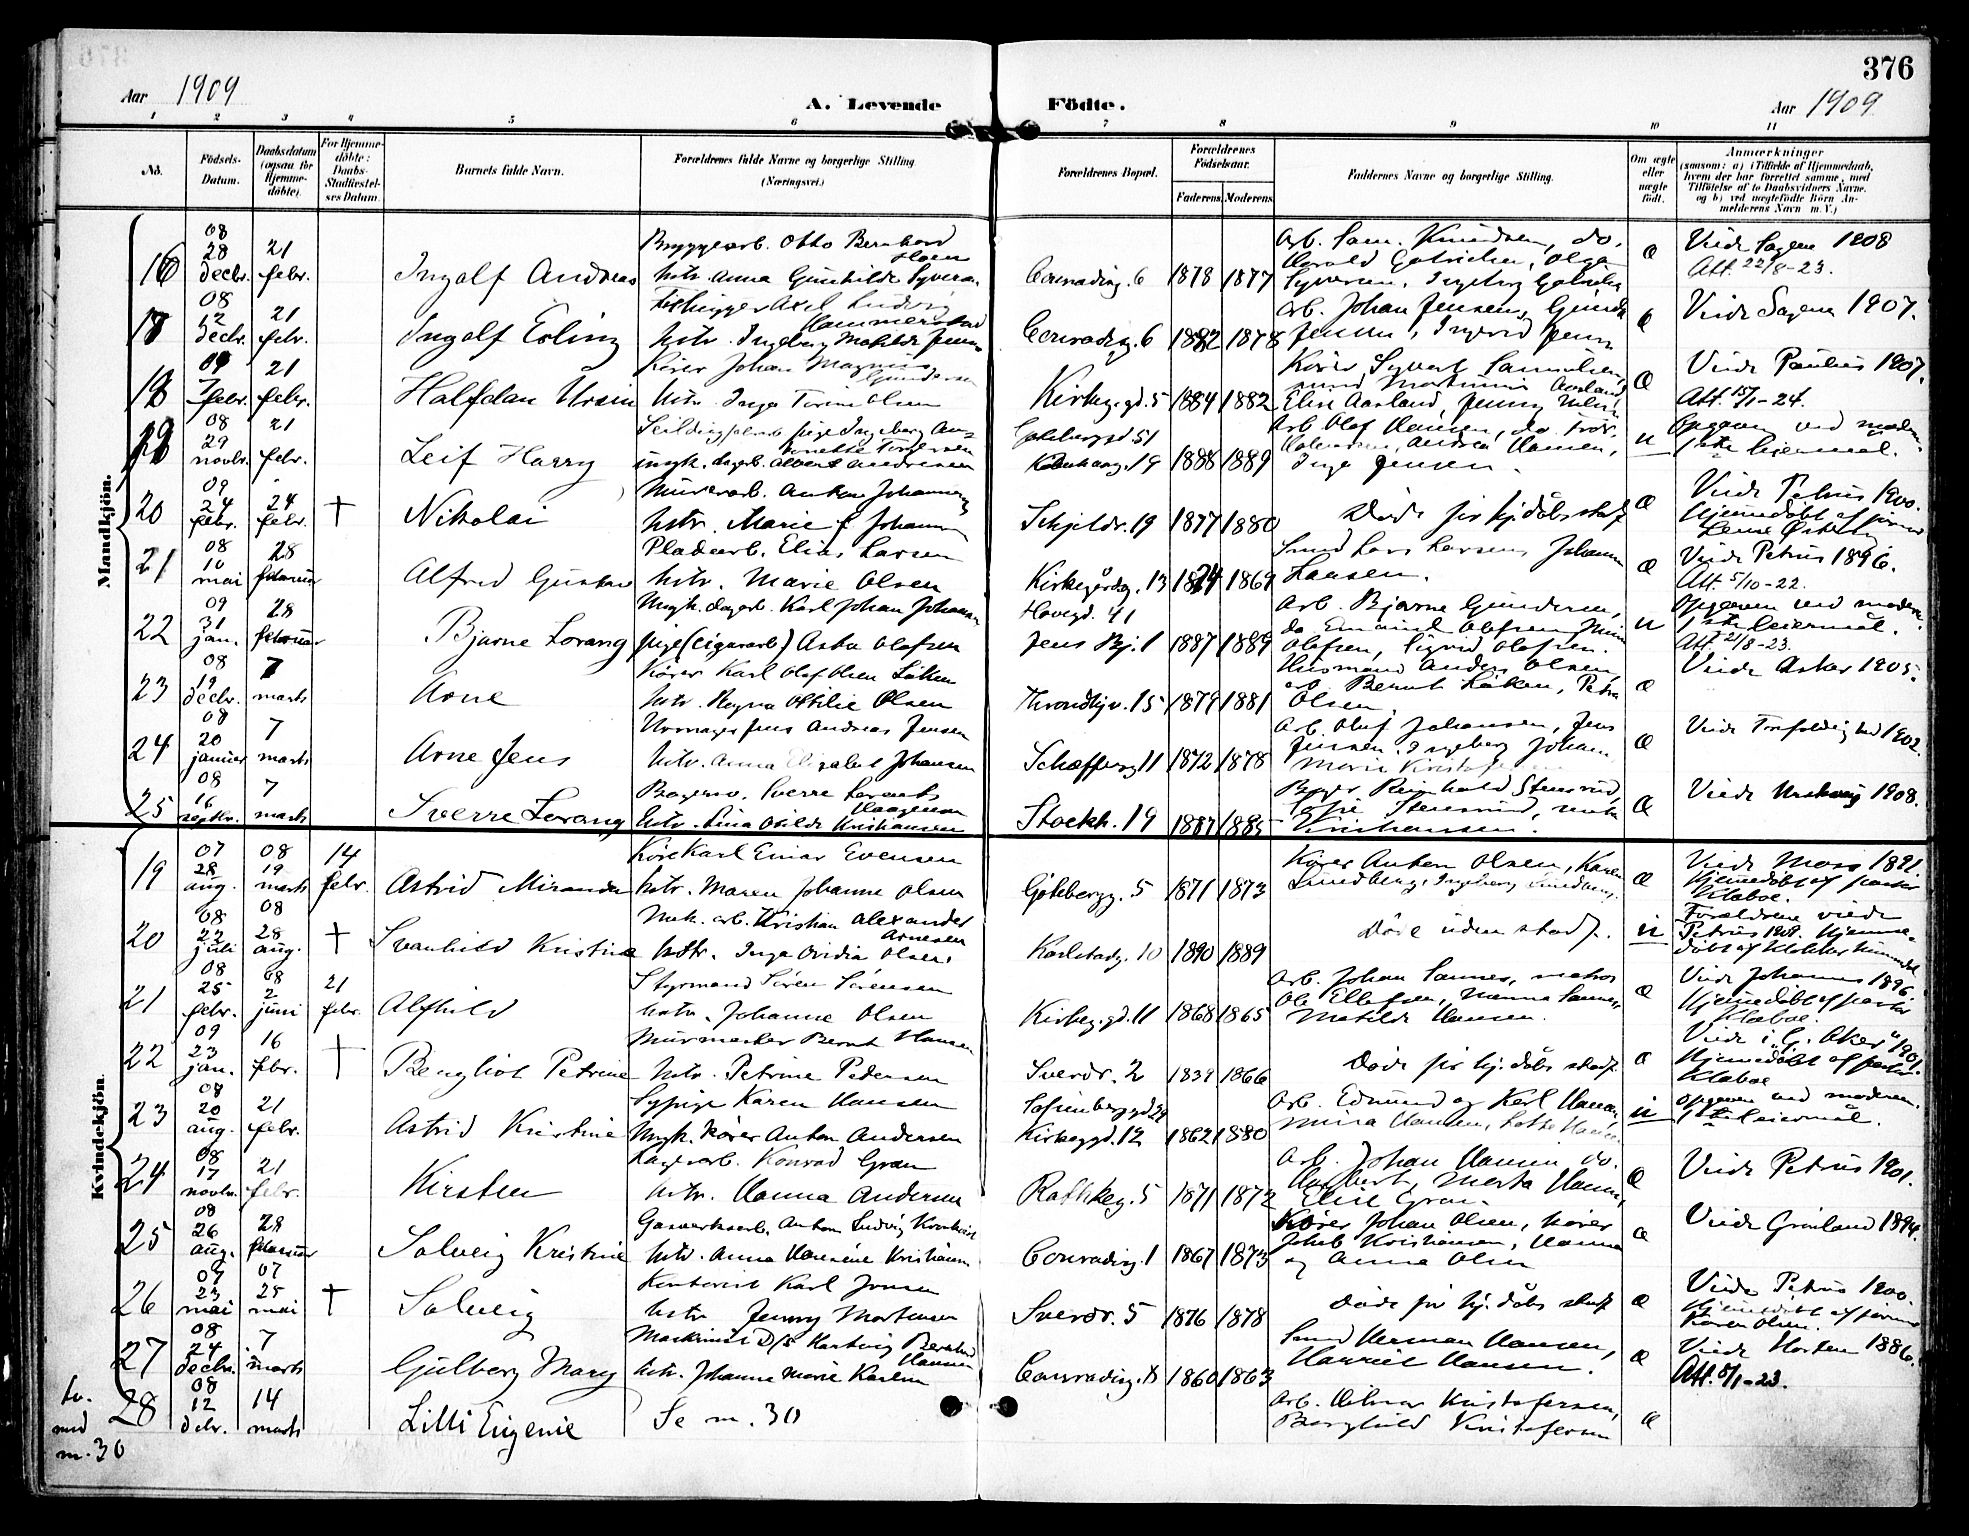 376
Aar 1909
A. Levende Födte.
Aar 1909
1 2 3 4 5 6 7 8 9 10 11
No.
Födsels-Datum.
Daabsdatum (ogsaa for Hjemme-döbte).
For Hjemme-döbte: Daabs-Stadfæstel-ses Datum.
Barnets fulde Navn.
Forældrenes fulde Navne og borgerlige Stilling. (Næringsvei.)
Forældrenes Bopæl.
Forældrenes Födselsaar.
Faderens. Moderens.
Faddernes Navne og borgerlige Stilling.
Om ægte eller uægte födt.
Anmærkninger
(saasom: a) i Tilfælde af Hjemmedaab, hvem der har forrettet samme, med Tilföielse af to Daabsvidners Navne. og b) ved uægtefödte Börn Anmelderens Navn m. V.)
Mandkjön.
16 08 28 decbr. 21 febr. Ingolf Andreas
Bryggearb. Otto Bernhard Olsen
hstr. Anna Gunhilde Syvers.
Conradisg. 6 1878 1877
Arb. Sam. Knudsen, do.
Æ
Viede Sagene 1908
Att. 22/8-23.
17 08 12 decbr. 21 febr. Ingolf Erling
Axel Ludvig Hammerstad
hstr. Ingeborg Matilde
Conradisg. 6 1882 1878
Arb. Johan Jensen,
Æ
Viede Sagene 1907.
18 09 7 febr. 21 febr. Halfdan Ursin
Kører Johan Magnus Gundersen
hstr. Inga Olsen
Kirkeg.gd. 5 1884 1882
Kører Syvert
Elise Aasland, Jenny
Æ
Viede Paulus 1907.
Att. 15/1-24.
19 08 29 novbr. 21 febr. Leif Harry
pige Ingeborg
ungk. dagarb. Albert Andresen
19 1888 1889
Arb. Olof Hansen, do.
Andrea Hansen,
Inga Jensen.
u
Opgeven ved moderen.
1ste leiermål.
20 09 24 febr. 24 febr. † Nikolai
Murerarb. Anton Johannesen
hstr. Marie f. Johansen
Schjoldr. 19 1877 1880
Døde før hj.døbs stadf.
Æ
Viede Petrus 1900.
Hjemmedøbt af
21 08 10 mai 28 februar Alfred Gustav
Pladearb. Elias Larsen
hstr. Marie Olsen
Kirkegårdsg. 13 1874 1869
Smed Lars Larsen, Johann
Hansen.
Æ
Viede Petrus 1896.
Att. 5/10-22.
22 09 31 jan. 28 februar Bjarne Lorang
Ungk. dagarb. Karl Johan Johansen
pige (cigararb) Asta Olafsen
Hovegd. 41
Jens Bj. 1 1887 1889
Arb. Bjarne Gundersen,
do Emanuel Olafsen,
Olafsen, Sigrid Olafsen.
u
Opgeven ved moderen.
1ste leiermål.
Att. 21/8-23.
23 08 19 decbr. 7 marts Arne
Kører Karl Olaf Olsen Løken
hstr. Magna Ottilie Olsen
Trondhjv. 15 1879 1881
Husmand Anders Olsen,
arb. Bernt Løken, Petra
Olsen.
Æ
Viede Asker 1905.
24 08 20 januar 7 marts Arne Jens
Urmager Jens Andreas Jensen
hstr. Anna Elizabet Johansen
Schæfferg. 11 1872 1878
Arb. Oluf Johansen, Jens
Jensen, Ingeborg Johan.
Æ
Viede Trefoldighed 1902.
25 08 16 septbr. 7 marts Sverre Lorang
Bagersv. Sverre Haagensen
hstr. Lina Otilde Kristiansen
Stockh. 19 1887 1885
Bager Reinhold Stensrud,
Sofie Stensrud,
Kristiansen.
Æ
Viede Urskoug 1908.
Kvindekjön.
19 07 28 aug. 08 19 marts 14 febr. Astrid Miranda
Karl Einar Evensen
hstr. Maren Johanne Olsen
Gøteborgg. 5 1871 1873
Kører Anton Olsen, Karen
Lundberg, Ingeborg Lundberg.
Æ
Viede Moss 1891.
Hjemmedøbt af pastor
Klaboe.
20 08 22 juli 08 28 aug. † Svanhild Kristine
Mek. arb. Kristian Alexander Arnesen
hstr. Inga Ovidia Olsen.
Karlstadg. 10 1890 1889
Døde uden stadf.
u
Forældrene viede
Petrus 1908. Hjemme-
døbt af klokker
21 08 25 febr. 08 2 juni 21 febr. Alfhild
Styrmand Søren Sørensen
hstr. Johanne Olsen
Kirkeg.gd. 11 1868 1865
Arb. Johan Sannes, matros
Ole Ellefsen, Hanna Sannes,
Matilde Hansen.
Æ
Viede Johannes 1896.
Hjemmedøbt af pastor
Klaboe.
22 09 23 jan. 16 febr. † Bergliot Petrine
Murmester Bernt Hansen
hstr. Petrine Pedersen
Sverdr. 2 1839 1866
Døde før hj.døbs stadf.
Æ
Viede i "G. Aker" 1901.
Hjemmedøbt af pastor
Klaboe
23 08 20 aug. 21 febr. Astrid Kristine
Sypige Karen Hansen
Ungk. kører Anton Andersen
Sofienberggd 29
Kirkeggd. 12 1862 1880
Arb. Edmund og Karl Hansen,
Mina Hansen, Lotte
u
Opgeven ved moderen.
1ste leiermål.
24 08 17 novbr. 21 febr. Kirsten
Lagerarb. Konrad Gran
hstr. Hanna Andersen
Rathkeg. 5 1871 1872
Arb. Johan Hansen do.
Marta Hansen,
Elise Gran.
Æ
Viede Petrus 1901.
25 08 26 aug. 28 februar Solveig Kristine
Gasverksarb. Anton Ludvig
hstr. Anna Hansine Kristiansen
Conradisg. 1 1867 1873
Kører Johan Olsen, kører
Jakob Kristiansen, Hanna
og Anna Olsen
Æ
Viede Grønland 1894.
26 07 23 mai 07 25 mai † Solveig
Kontorist Karl Jonsen
hstr Jenny Mortensen
Sverdr. 5 1876 1878
Døde før hj.døbs stadf.
Æ
Viede Petrus 1900.
Hjemmedøbt af
Karen Olsen.
27 08 24 decbr. 7 marts Gulborg Mary
Maskinist D/S Hartvig Bernhard Hansen
hstr. Johanne Marie Karlsen
Conradisg. 8 1860 1863
Smed Herman Hansen,
Harriet Hansen.
Æ
Viede Horten 1886.
Att. 5/1-23.
tv. med n. 30
28 08 12 debr. 14 marts Lilli Eugenie
Se n. 30
Arb. Hilmar Kristofersen,
Borghild Kristofersen
Æ